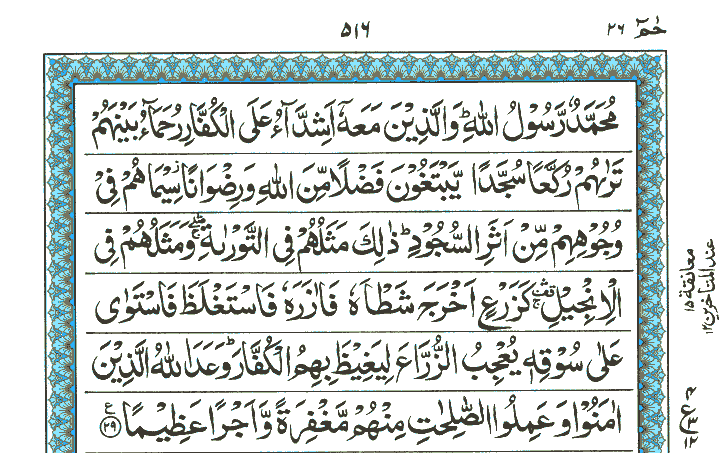 حٰمٓ ٢٦
٥١٦
مُحَمَّدٌ رَّسُوْلُ اللّٰهِ ؕ وَالَّذِيْنَ مَعَهٗۤ اَشِدَّآءُ عَلَى الْكُفَّارِ رُحَمَآءُ بَيْنَهُمْ
تَرٰىهُمْ رُكَّعًا سُجَّدًا يَّبْتَغُوْنَ فَضْلًا مِّنَ اللّٰهِ وَرِضْوَانًا ۫ سِيْمَاهُمْ فِيْ
وُجُوْهِهِمْ مِّنْ اَثَرِ السُّجُوْدِ ؕ ذٰلِكَ مَثَلُهُمْ فِي التَّوْرٰىةِ ۛۖۚ وَمَثَلُهُمْ فِي
الْاِنْجِيْلِ ۛ۫ۚ كَزَرْعٍ اَخْرَجَ شَطْـَٔهٗ فَاٰزَرَهٗ فَاسْتَغْلَظَ فَاسْتَوٰى
عَلٰى سُوْقِهٖ يُعْجِبُ الزُّرَّاعَ لِيَغِيْظَ بِهِمُ الْكُفَّارَ ؕ وَعَدَ اللّٰهُ الَّذِيْنَ
اٰمَنُوْا وَعَمِلُوا الصّٰلِحٰتِ مِنْهُمْ مَّغْفِرَةً وَّاَجْرًا عَظِيْمًا ﴿٢٩﴾ ع
معانقة ١٥
عند المتاخرين ١٢
ع